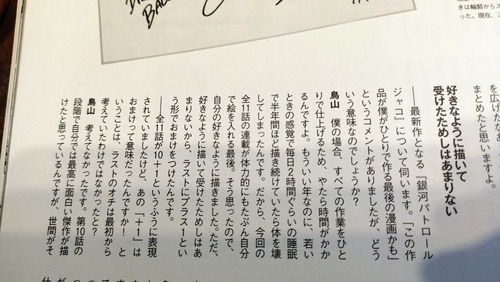 きは輪郭からス
った。現在、
まとめたいと思いますよ。
好きなように描いて
受けたためしはあまりない
――最新作となる『銀河パトロール
ジャコ』について伺います。「この作
品が僕がひとりで作る最後の漫画かも」
というコメントがありましたが、どう
いう意味なのでしょうか?
鳥山　僕の場合、すべての作業をひと
りで仕上げるため、やたら時間がかか
るんですよ。もういい年なのに、若い
ときの感覚で毎日2時間ぐらいの睡眠
で半年間ほど描き続けていたら体を壊
してしまったんです。だから、今回の
全11話の連載が体力的にもたぶん自分
で絵を入れる最後。そう思ったので、
自分の好きなように描きました。ただ、
好きなように描いて受けたためしはあ
まりないから、ラストにプラス1とい
う形でおまけをつけたんです。
――全11話が10+1というふうに表現
されていましたけど、あの「+1」は
おまけって意味だったんですか! と
いうことは、ラストのオチは最初から
考えていたわけではなかったと?
鳥山　考えてなかったです。第10話の
段階で自分では最高に面白い傑作が描
けたと思っているんですが、世間がそ